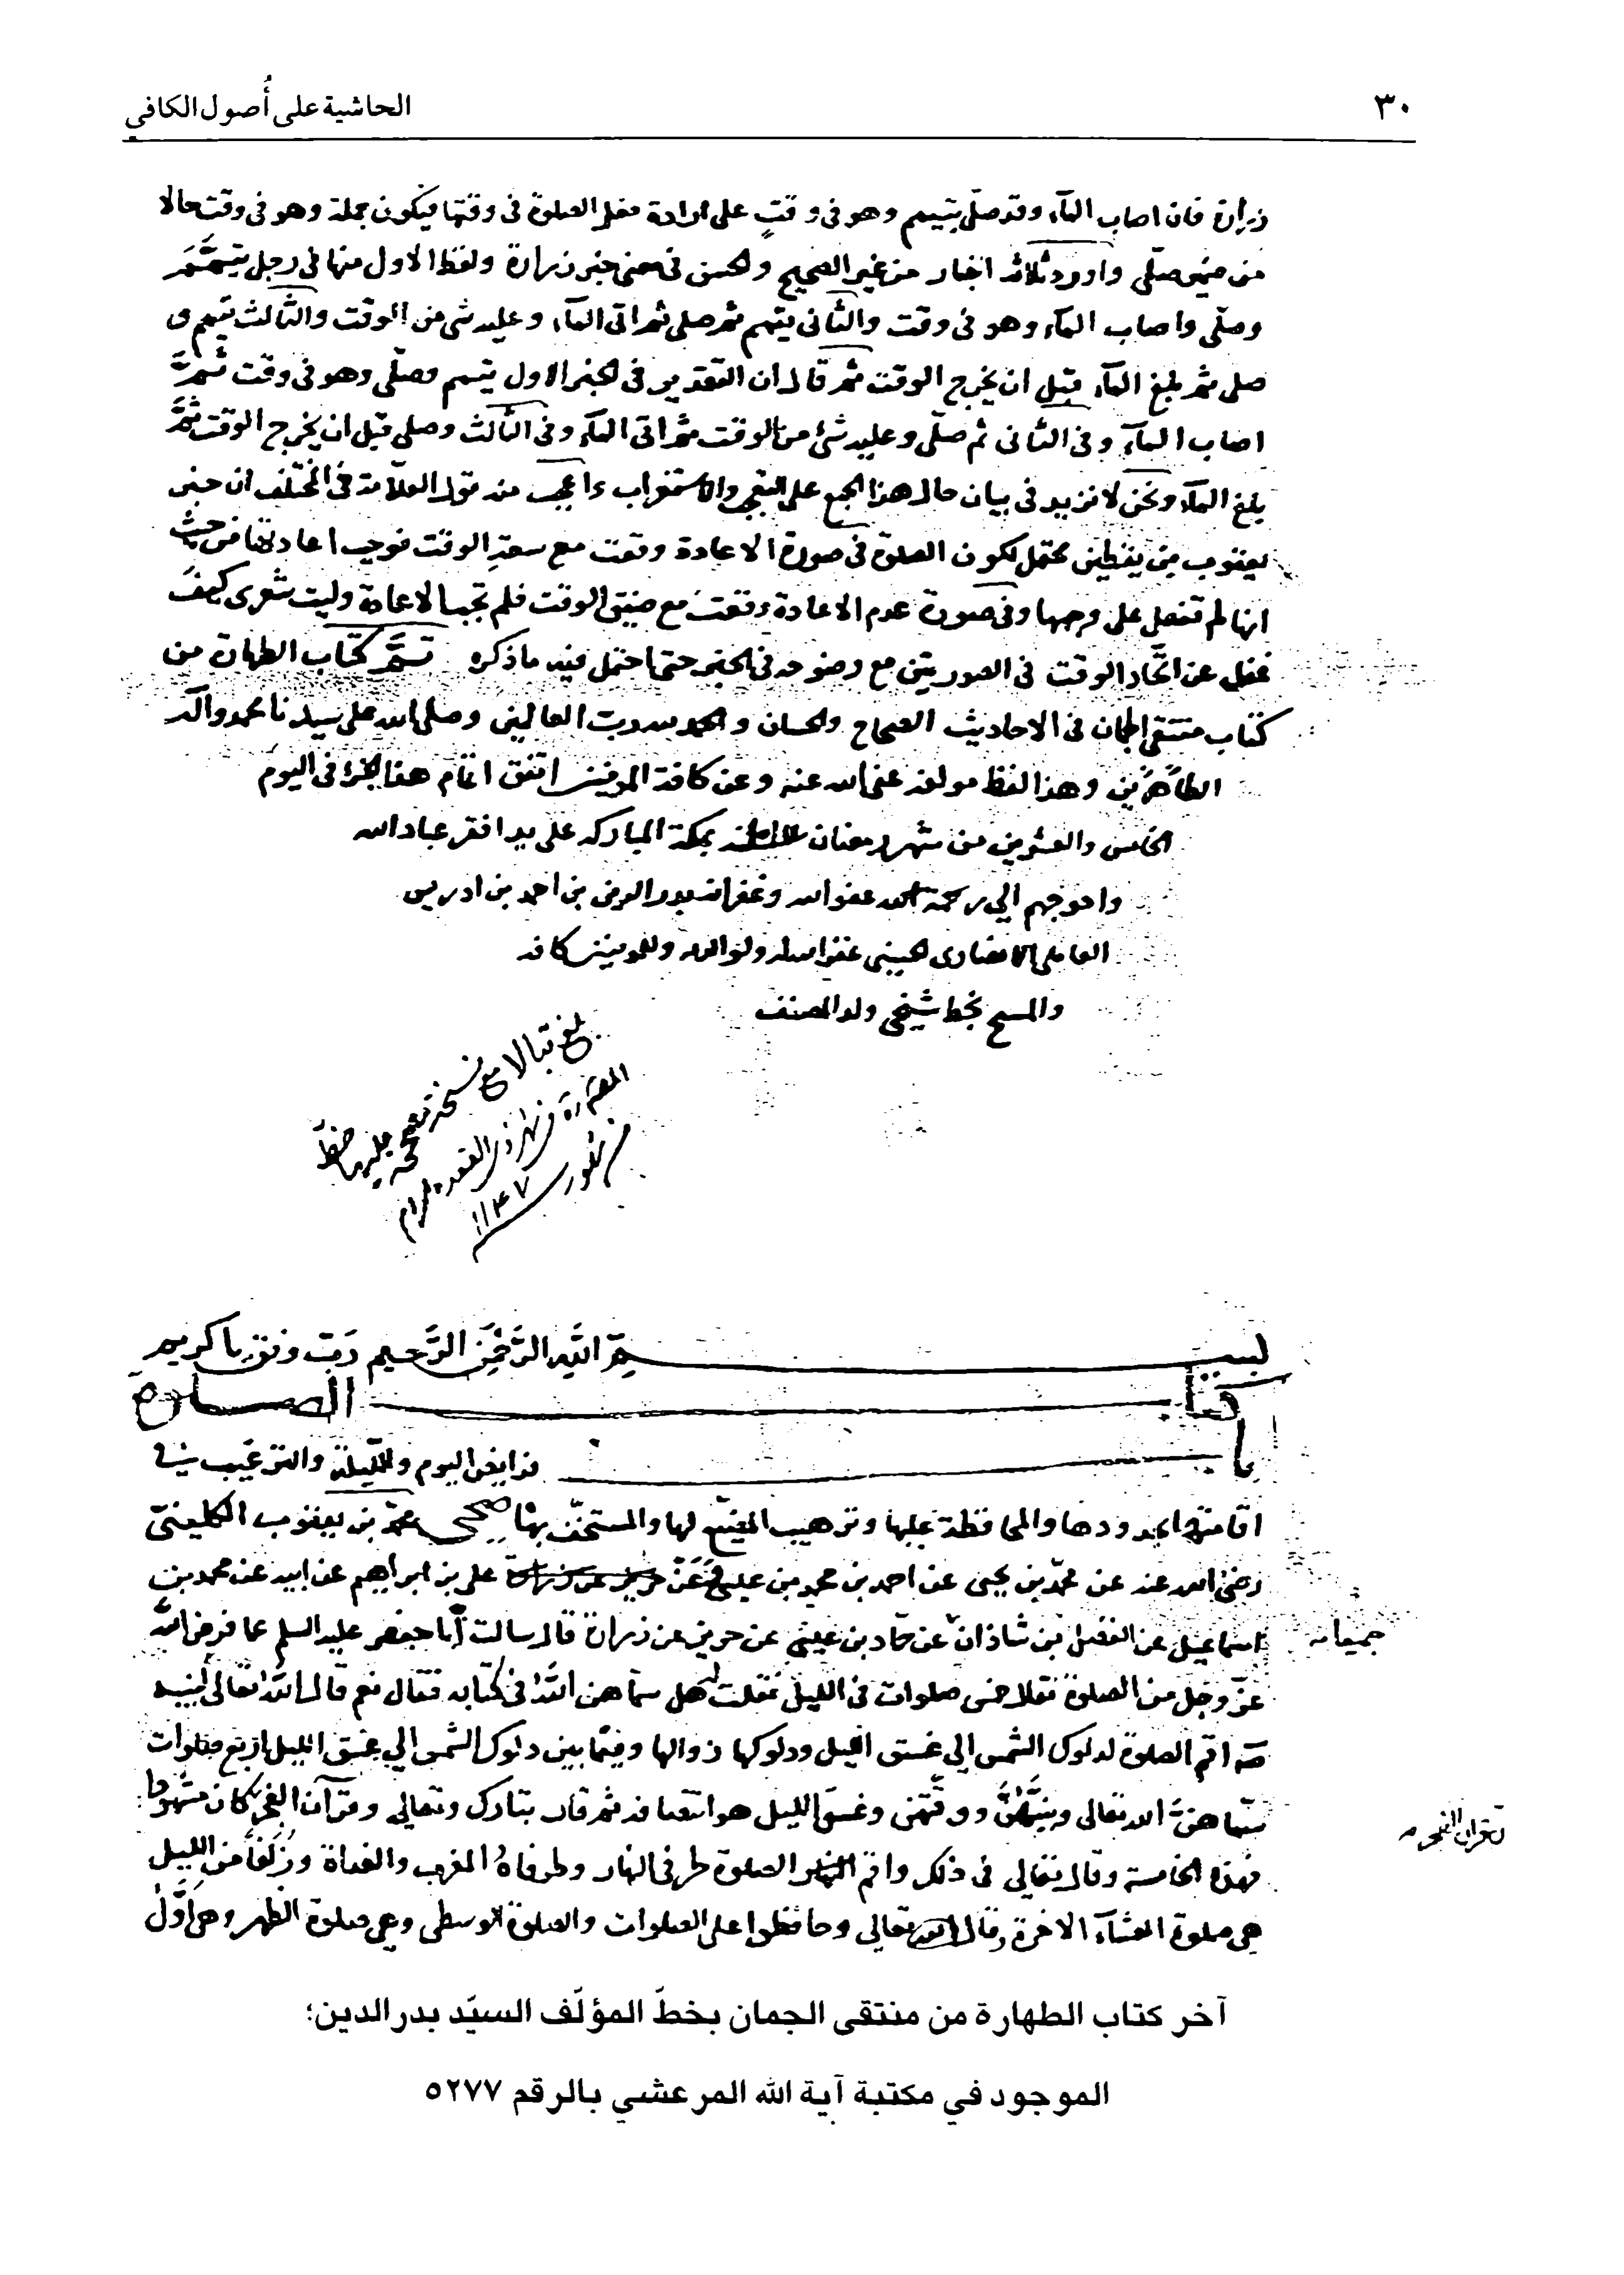 ٣٠
الحاشية على أُصول الكافي
زرارة فان اصاب المآء وقد صلى بتيمم وهو فى وقتٍ على ارادة فعل الصلوة فى وقتها فيكون جملة وهو فى وقت حالا
من ضمير صلّى واورد ثلاثة اخبار من غير الصحيح والحسن فى معنى خبر زرارة ولفظ الاول منها فى رجل تيمَّمَ
وصلّى واصاب المآء وهو فى وقت والثانى تيمم ثم صلى ثم اتى المآء وعليه شى من الوقت والثالث تيمم و
صلى ثم بلغ المآء قبل ان يخرج الوقت ثم قال ان التقدير فى الخبر الاول تيمم وصلّى وهو فى وقت ثمَّ
اصاب المآء وفى الثانى ثم صلّى وعليه شئ من الوقت ثم اتى المآء وفى الثالث وصلى قبل ان يخرج الوقت ثمَّ
بلغ المآء ونحن لا نزيد فى بيان حال هذا الجمع على التعجب والاستغراب واعجب منه قول العلّامة فى المختلف ان خبر
يعقوب بن يقطين محتمل لكون الصلوة فى صورة الاعادة وقعت مع سعة الوقت فوجب اعادتها من حيث
انها لم تفعل على وجهها وفى صورة عدم الاعادة وقعت مع ضيق الوقت فلم تجب الاعادة وليت شعرى كيف
غفل عن اتّحاد الوقت فى الصورتين مع وضوحه فى الخبر حتى احتمل فيه ما ذكره تمَّ كتاب الطهارة من
كتاب منتقى الجمان فى الاحاديث الصحاح والحسان والحمد لله رب العالمين وصلى الله على سيدنا محمد وآله
الطاهرين وهذا لفظ مولفه عفى الله عنه وعن كافة المومنين اتفق اتمام هذا الجزء فى اليوم
الخامس والعشرين من شهر رمضان بمكة المباركه على يد افقر عباد الله
واحوجهم الى رحمة الله عفو الله وغفرانه بدر الدين بن احمد بن ادريس
العاملى الانصارى الحسينى عفى الله له ولوالديه وللمومنين كافه
بخط شيخى ولد المصنف
بلغ قبالا مع نسخة
ذى القعده الحرام
١١٤٧
بسم اللّٰه الرَّحْمٰن الرَّحيم رَبّ وفق يا كريم
كتاب الصلوة
باب
فرايض اليوم والليلة والترغيب فى
اقامتها بحدودها والمحافظة عليها وترهيب المضيّع لها والمستخفّ بها صحى محمّد بن يعقوب الكلينىّ
رضى الله عنه عن محمّد بن يحيى عن احمد بن محمد بن عيسى وعن على بن ابراهيم عن ابيه عن محمد بن
اسماعيل عن الفضل بن شاذان عن حمّاد بن عيسى عن حريز عن زرارة قال سالت أبا جعفر عليه السلم عما فرض اللّٰه
جميعا
عزّ وجل من الصلوة فقال خمس صلوات فى الليل فقلت هل سمّاهن اللّٰه فى كتابه فقال نعم قال اللّٰه تعالى لنبيه
صه اقم الصلوة لدلوك الشمس الى غسق الليل ودلوكها زوالها وفيما بين دلوك الشمس الى غسق الليل اربع صلوات
سمّاهنَّ الله تعالى وبيَّنهنَّ ووقّتهن وغسق الليل هو انتصافه ثم قال تبارك وتعالى وقرآن الفجر كان مشهودا
فهذه الخامسة وقال تعالى فى ذلك واقم الصلوة طرفى النهار وطرفاهُ المغرب والغداة وزُلَفاً من الليل
هى صلوة العشآء الاخرة وقال الله تعالى وحافظوا على الصلوات والصلوة الوسطى وهى صلوة الظهر وهى اوّل
آخر كتاب الطهارة من منتقى الجمان بخطّ المؤلّف السيّد بدر الدين؛
الموجود في مكتبة آية الله المرعشي بالرقم ٥٢٧٧